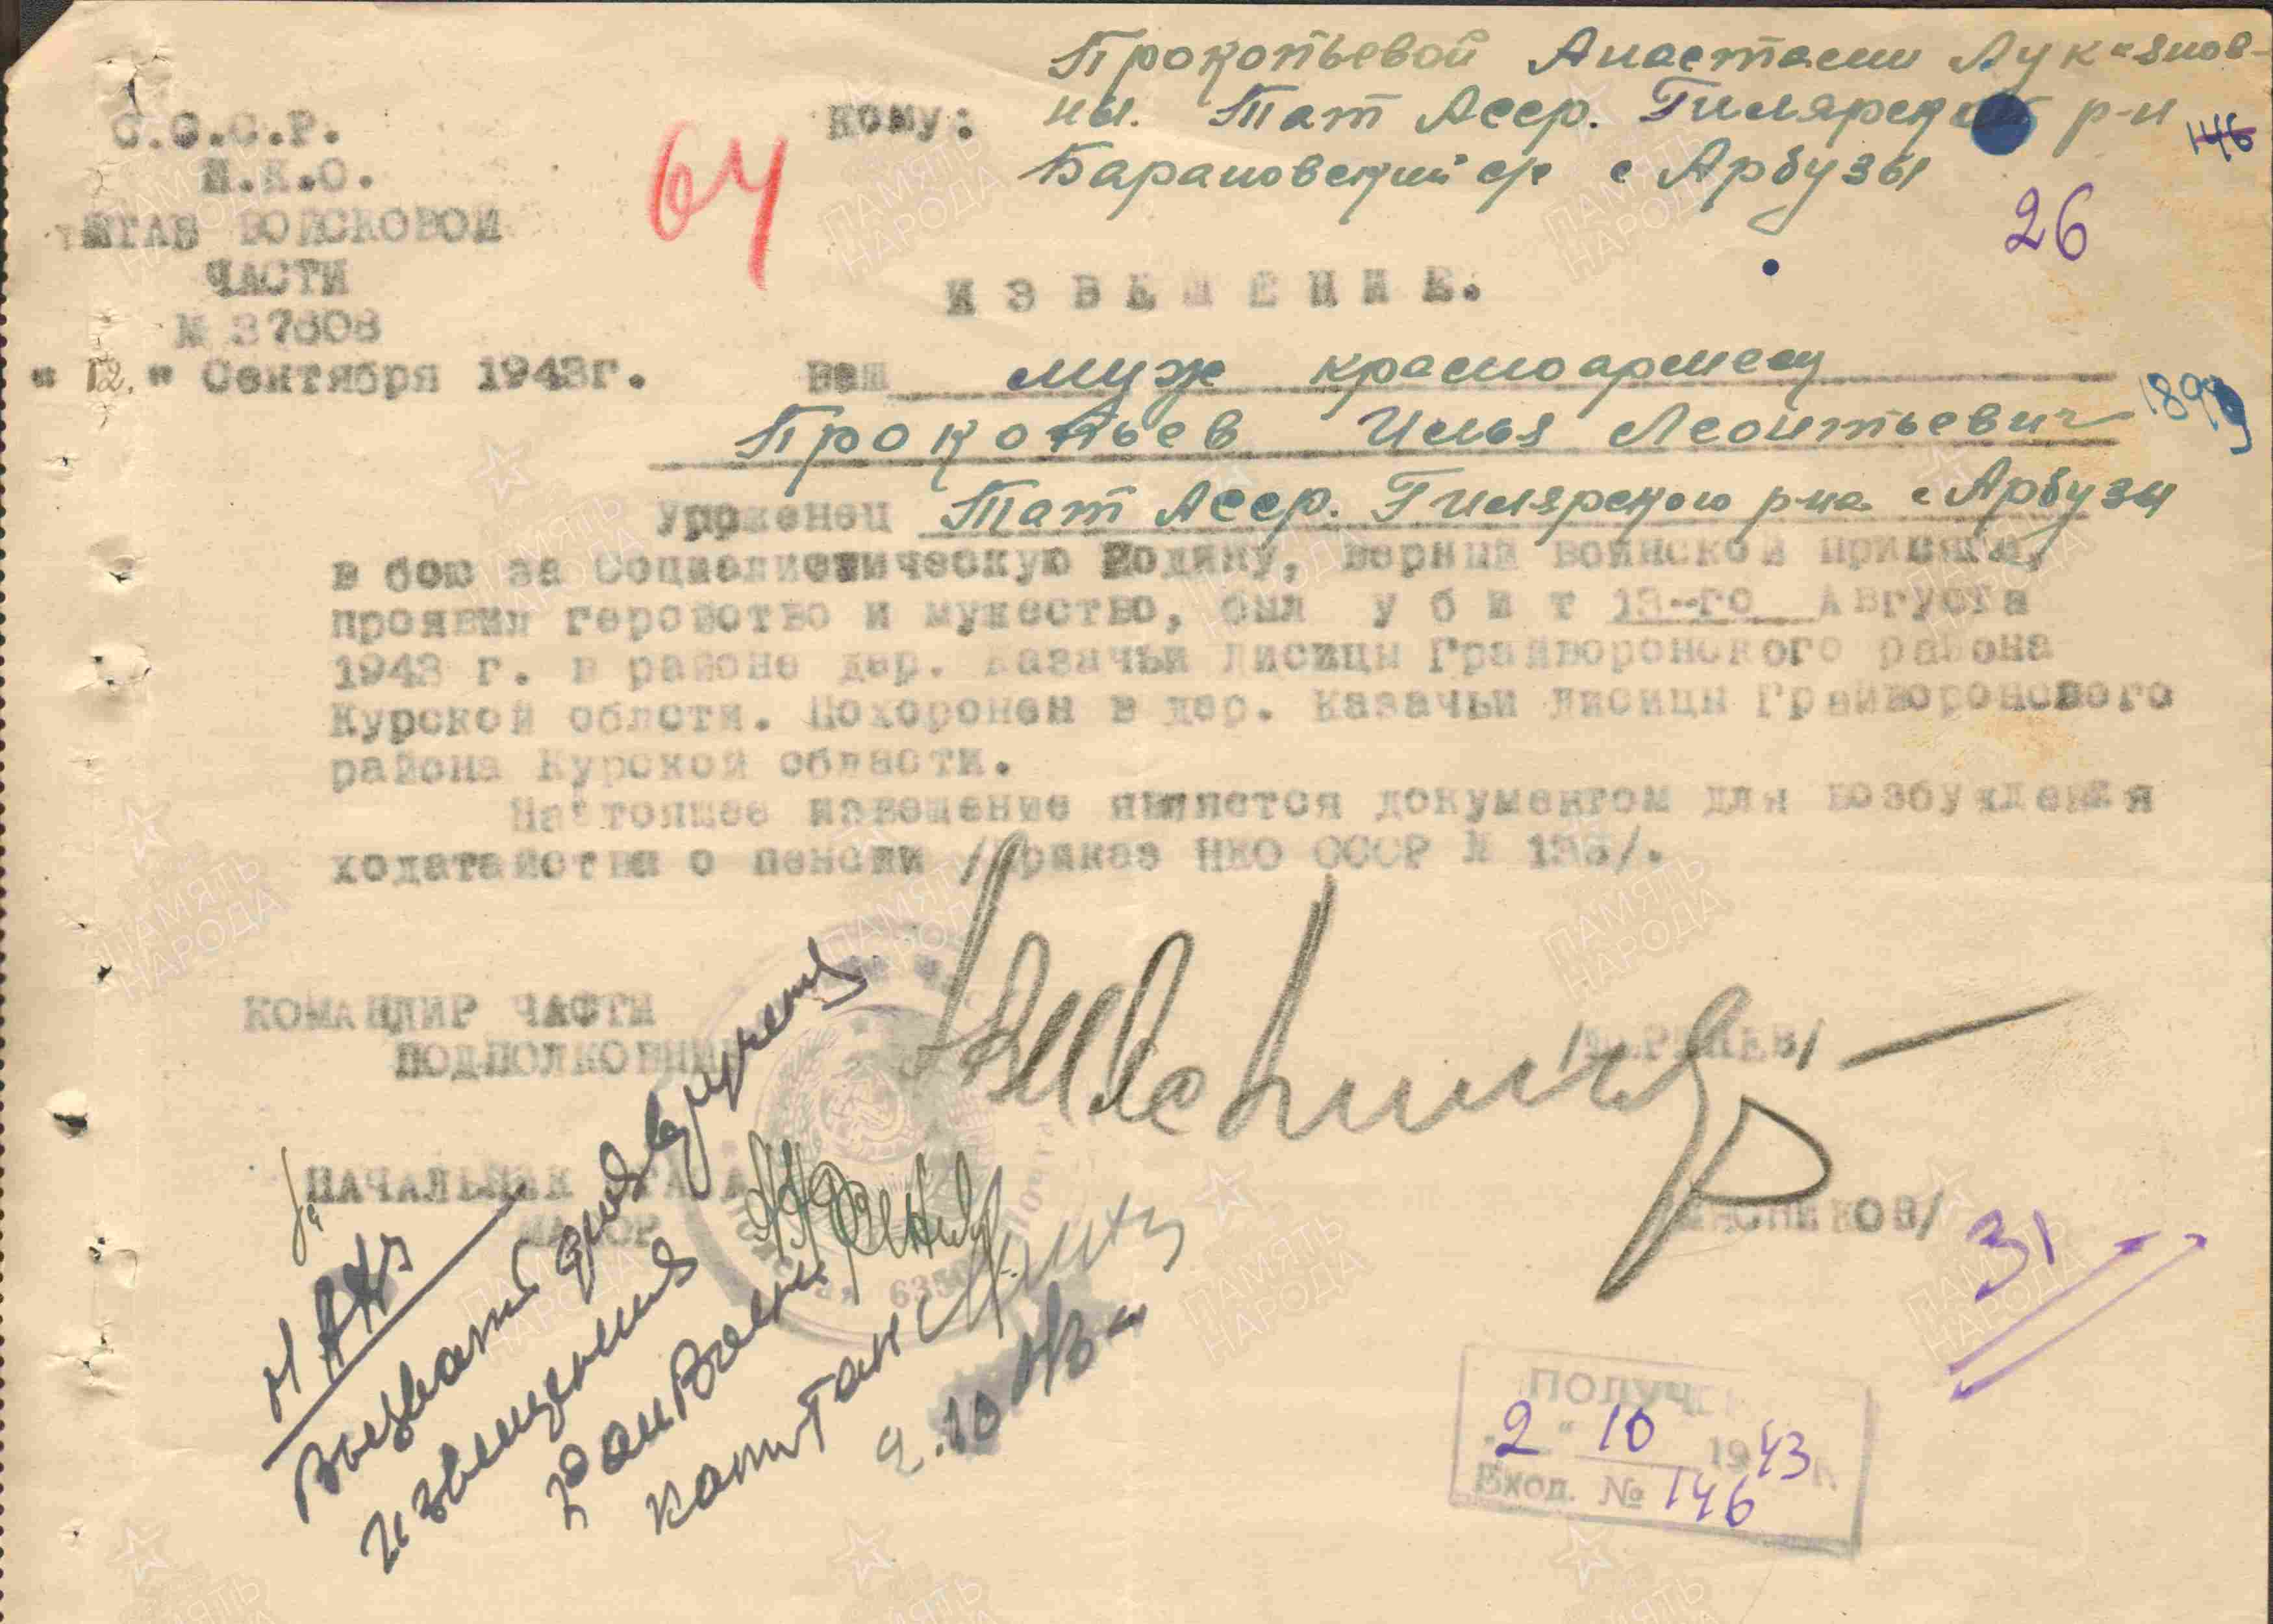 С.С.С.Р.
Н.К.О.
ШТАБ ВОЙСКОВОЙ
ЧАСТИ
№ 37608
" 12. " Сентября 1943г.
64
Кому: Прокопьевой Анастасии Лукьянов-
ны. Тат Асср. Билярский р-н
Барановский с/с с Арбузы
146
26
ИЗВЕЩЕНИЕ.
Ваш муж красноармеец
Прокопьев Илья Леонтьевич 1899
Уроженец Тат Асср. Билярского р-на с Арбузы
в бою за Социалистическую Родину, верный воинской присяги,
проявил геройство и мужество, был у б и т 13-го Августа
1943 г. в районе дер. Казачьи лисицы Грайворонского района
Курской облсти. Похоронен в дер. Казачьи лисицы Грайворонового
района Курской области.
Настоящее извещение является документом для возбуждения
ходатайства о пенсии /приказ НКО СССР № 138/.
КОМАНДИР ЧАСТИ
ПОДПОЛКОВНИК
НАЧАЛЬНИК ШТАБА
МАЙОР
Вызвать для вручения
извещения
РайВоен
капитан
2.10 43
31
ПОЛУЧЕНО
" 2 " 10 1943
Вход. № 146
ПАМЯТЬ
НАРОДА